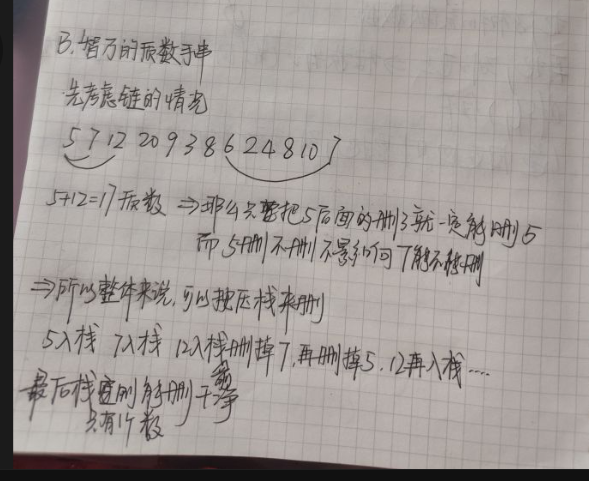 B.智乃的质数手串
先考虑链的情况
5 7 12 20 9 3 8 6 2 4 8 10 7
5+12=17质数 ⇒那么只要把5后面的删了就一定能删5
而5删不删不影响何了能不能删
⇒所以整体来说,可以按压栈来删
5入栈 7入栈 12入栈删掉7,再删掉5.12再入栈....
最后栈里则能删干净
只有1个数